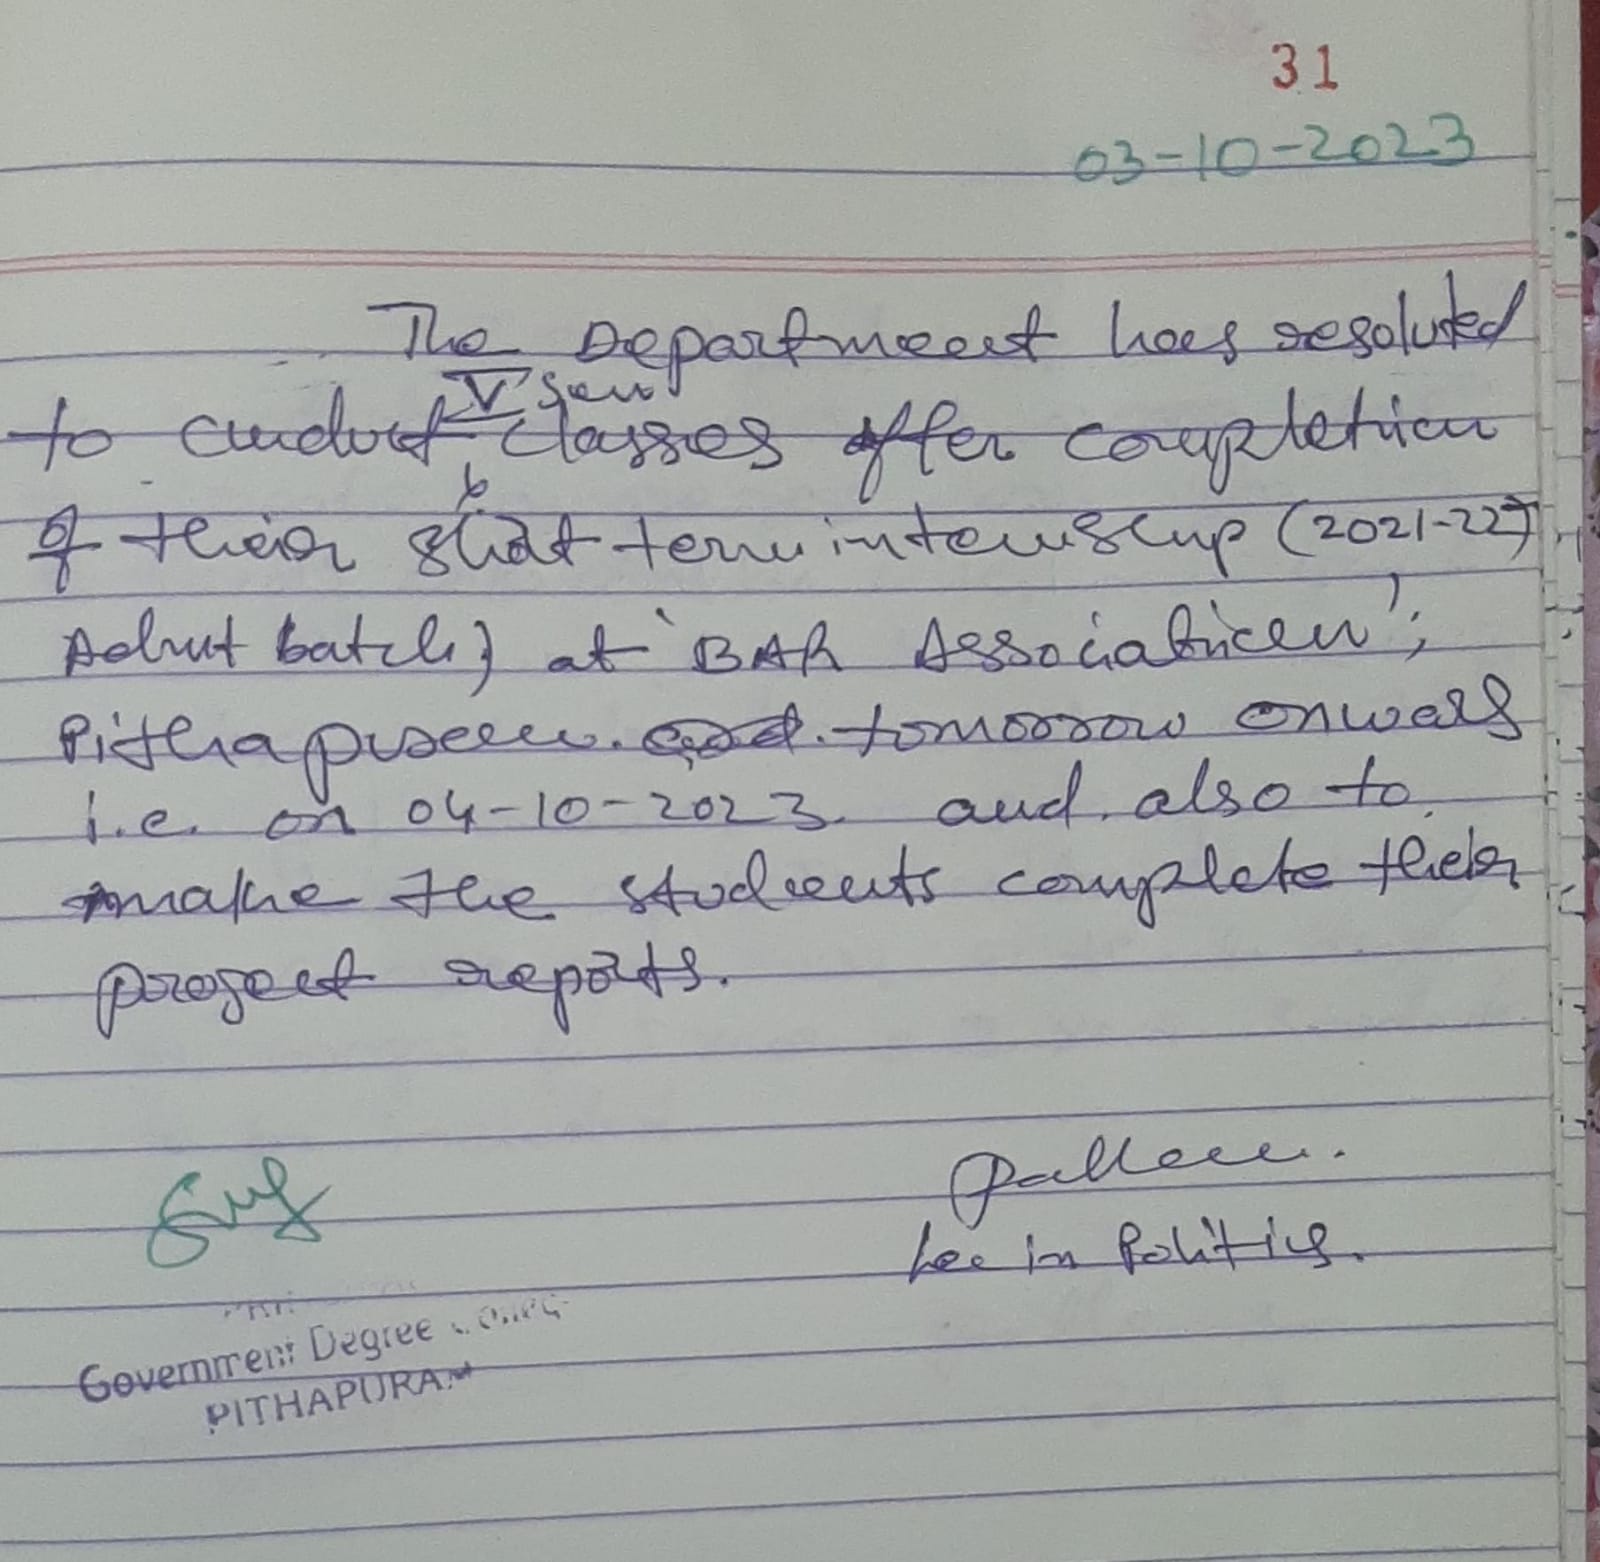 31
03-10-2023
The Department has resoluted
V Sem
to conduct classes after completion
of their short term internship (2021-22)
Admt batch) at 'BAR Association',
Pithapuram. tomorrow onwars
i.e. on 04-10-2023. and also to
make the students complete their
project reports.
Lec in Politics.
Government Degree
PITHAPURAM